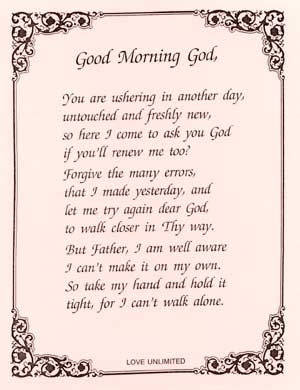 Good Morning God,
You are ushering in another day,
untouched and freshly new,
so here I come to ask you God
if you'll renew me too?
Forgive the many errors,
that I made yesterday, and
let me try again dear God,
to walk closer in Thy way.
But Father, I am well aware
I can't make it on my own.
So take my hand and hold it
tight, for I can't walk alone.
LOVE UNLIMITED